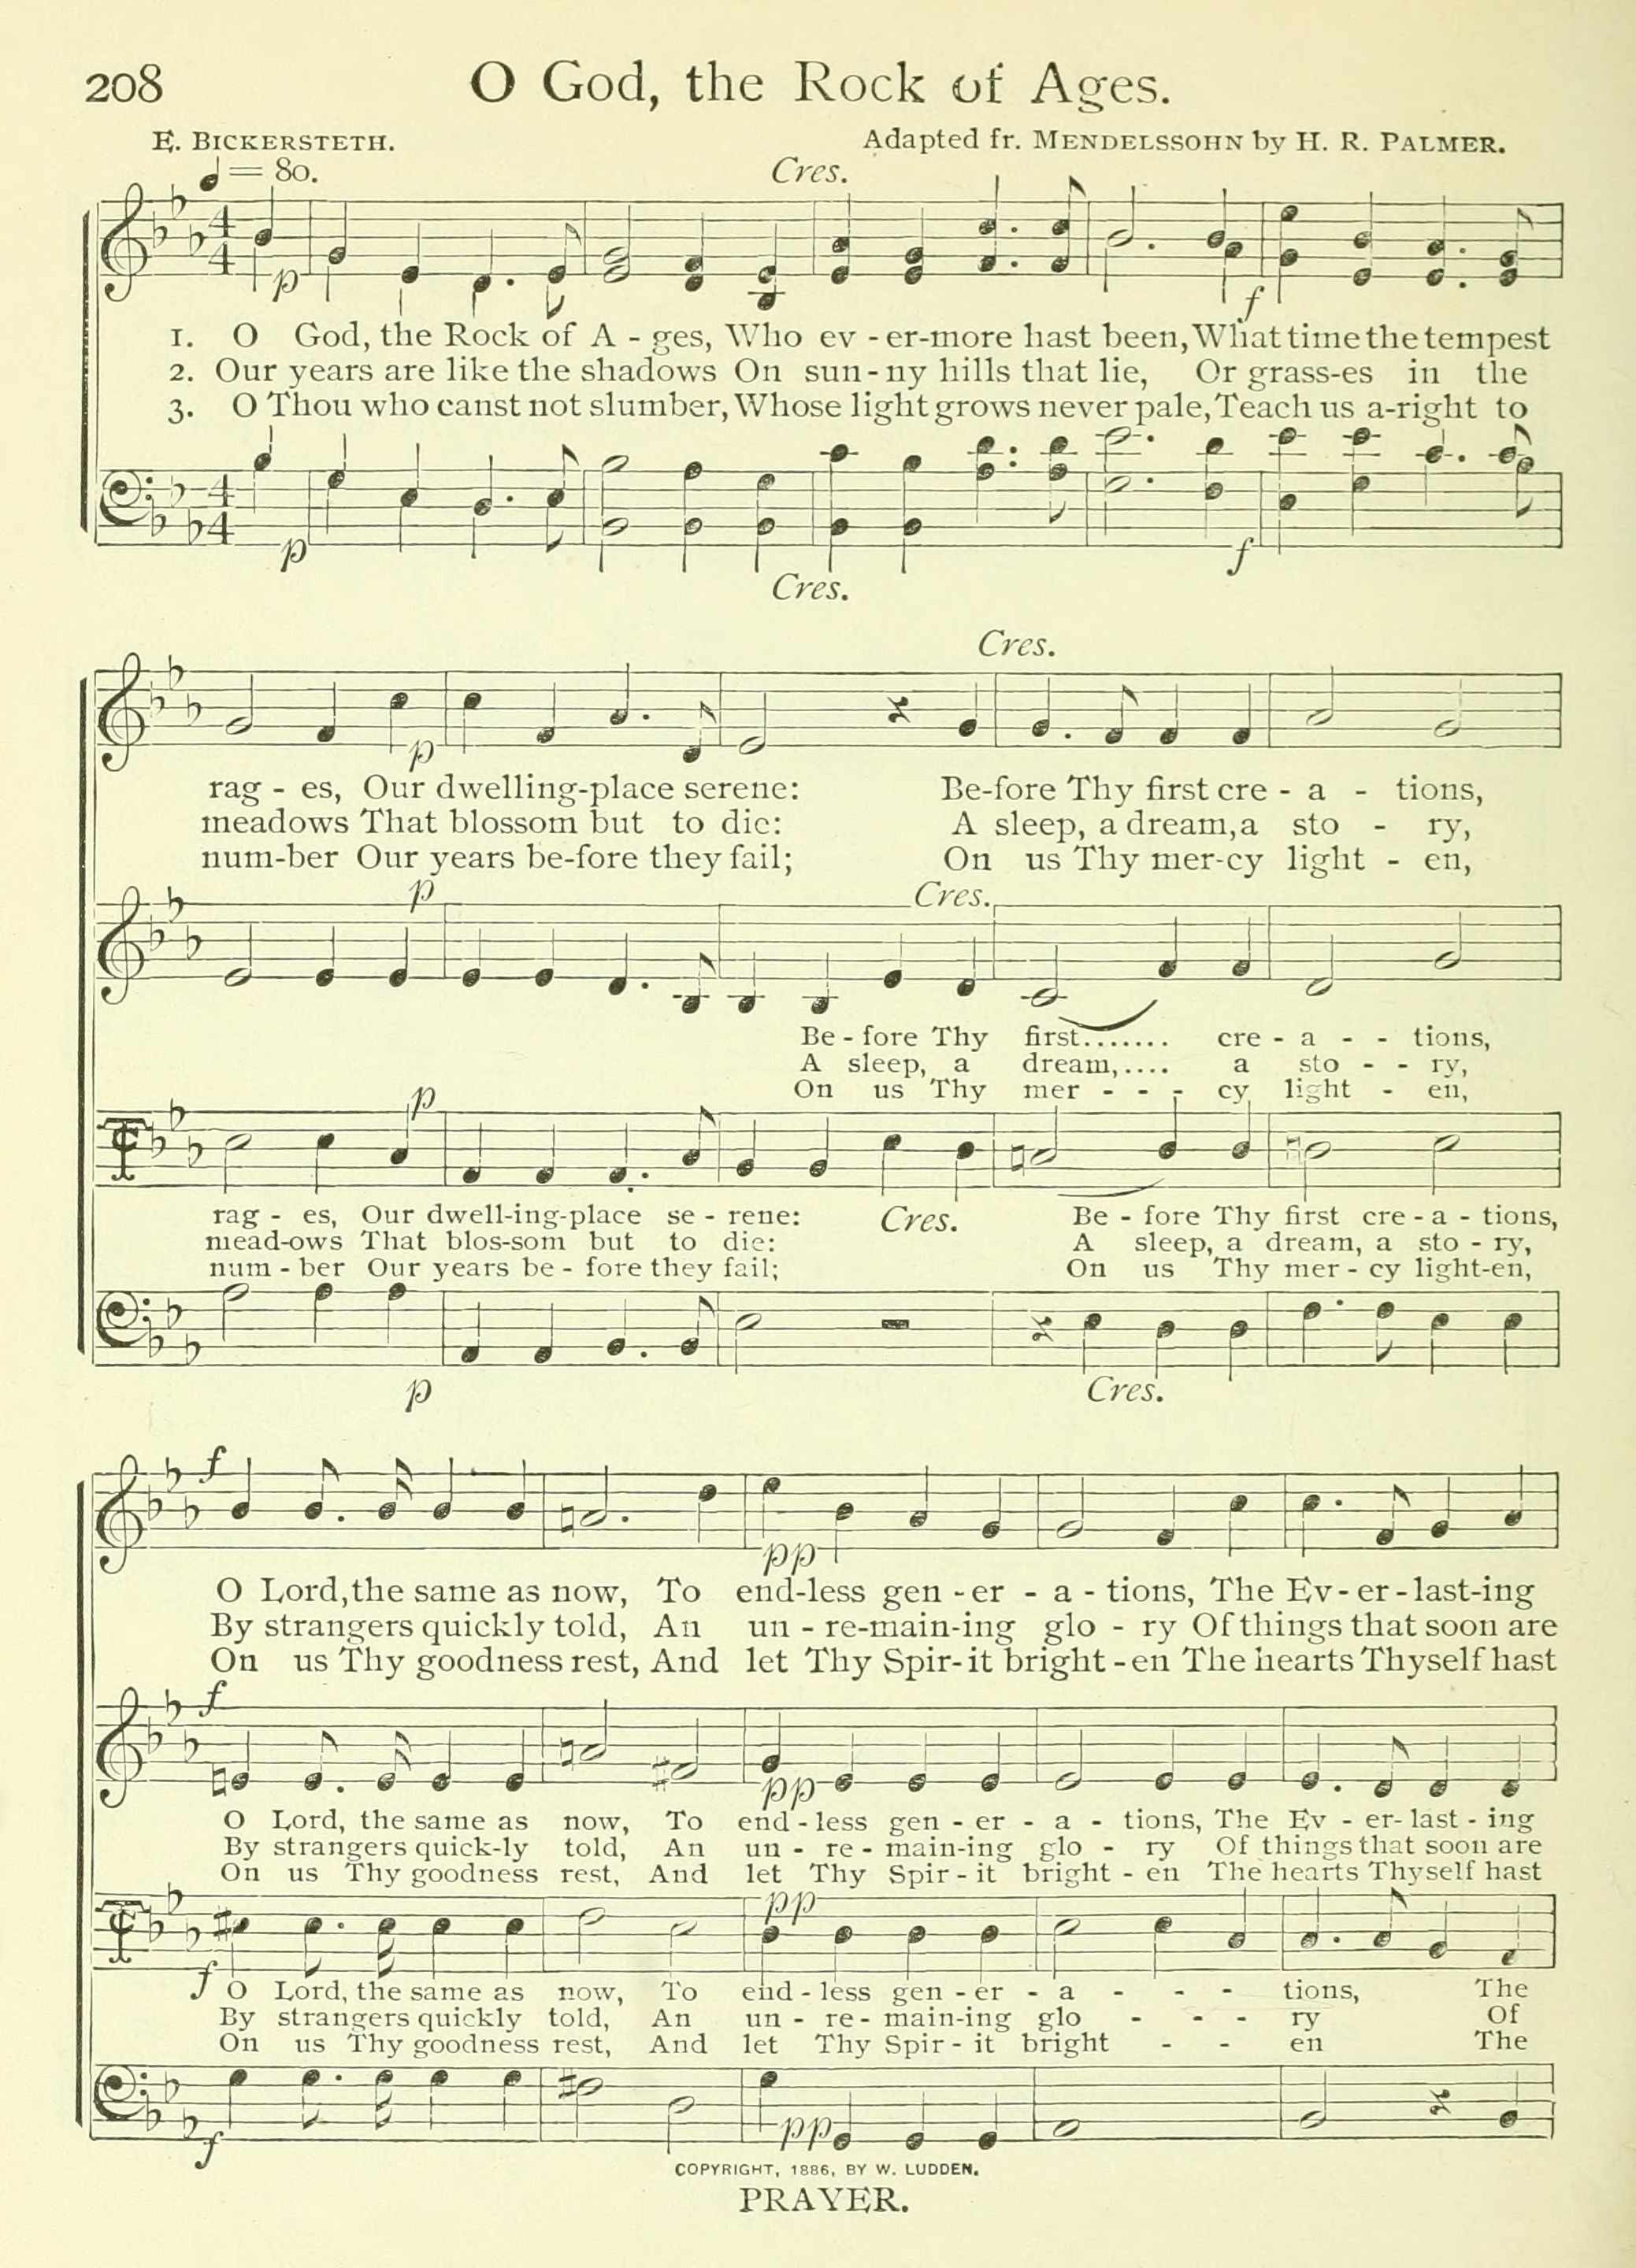 208
O God, the Rock of Ages.
E. BICKERSTETH.
Adapted fr. MENDELSSOHN by H. R. PALMER.
♩ = 80.
Cres.
4
4
p
f
1. O God, the Rock of A - ges, Who ev - er-more hast been, What time the tempest
2. Our years are like the shadows On sun - ny hills that lie, Or grass-es in the
3. O Thou who canst not slumber, Whose light grows never pale, Teach us a-right to
4
4
p
f
Cres.
Cres.
p
rag - es, Our dwelling-place serene: Be-fore Thy first cre - a - tions,
meadows That blossom but to die: A sleep, a dream, a sto - ry,
num-ber Our years be-fore they fail; On us Thy mer-cy light - en,
p
Cres.
Be - fore Thy first....... cre - a - - tions,
A sleep, a dream,.... a sto - - ry,
On us Thy mer - - - cy light - en,
p
rag - es, Our dwell-ing-place se - rene: Cres. Be - fore Thy first cre - a - tions,
mead-ows That blos-som but to die: A sleep, a dream, a sto - ry,
num - ber Our years be - fore they fail; On us Thy mer - cy light-en,
p
Cres.
f
pp
O Lord, the same as now, To end-less gen - er - a - tions, The Ev - er - last-ing
By strangers quickly told, An un - re-main-ing glo - ry Of things that soon are
On us Thy goodness rest, And let Thy Spir-it bright - en The hearts Thyself hast
f
pp
O Lord, the same as now, To end - less gen - er - a - tions, The Ev - er- last - ing
By strangers quick-ly told, An un - re - main-ing glo - ry Of things that soon are
On us Thy goodness rest, And let Thy Spir - it bright - en The hearts Thyself hast
pp
f
O Lord, the same as now, To end - less gen - er - a - - - tions, The
By strangers quickly told, An un - re - main-ing glo - - - ry Of
On us Thy goodness rest, And let Thy Spir - it bright - - en The
f
pp
COPYRIGHT, 1886, BY W. LUDDEN.
PRAYER.